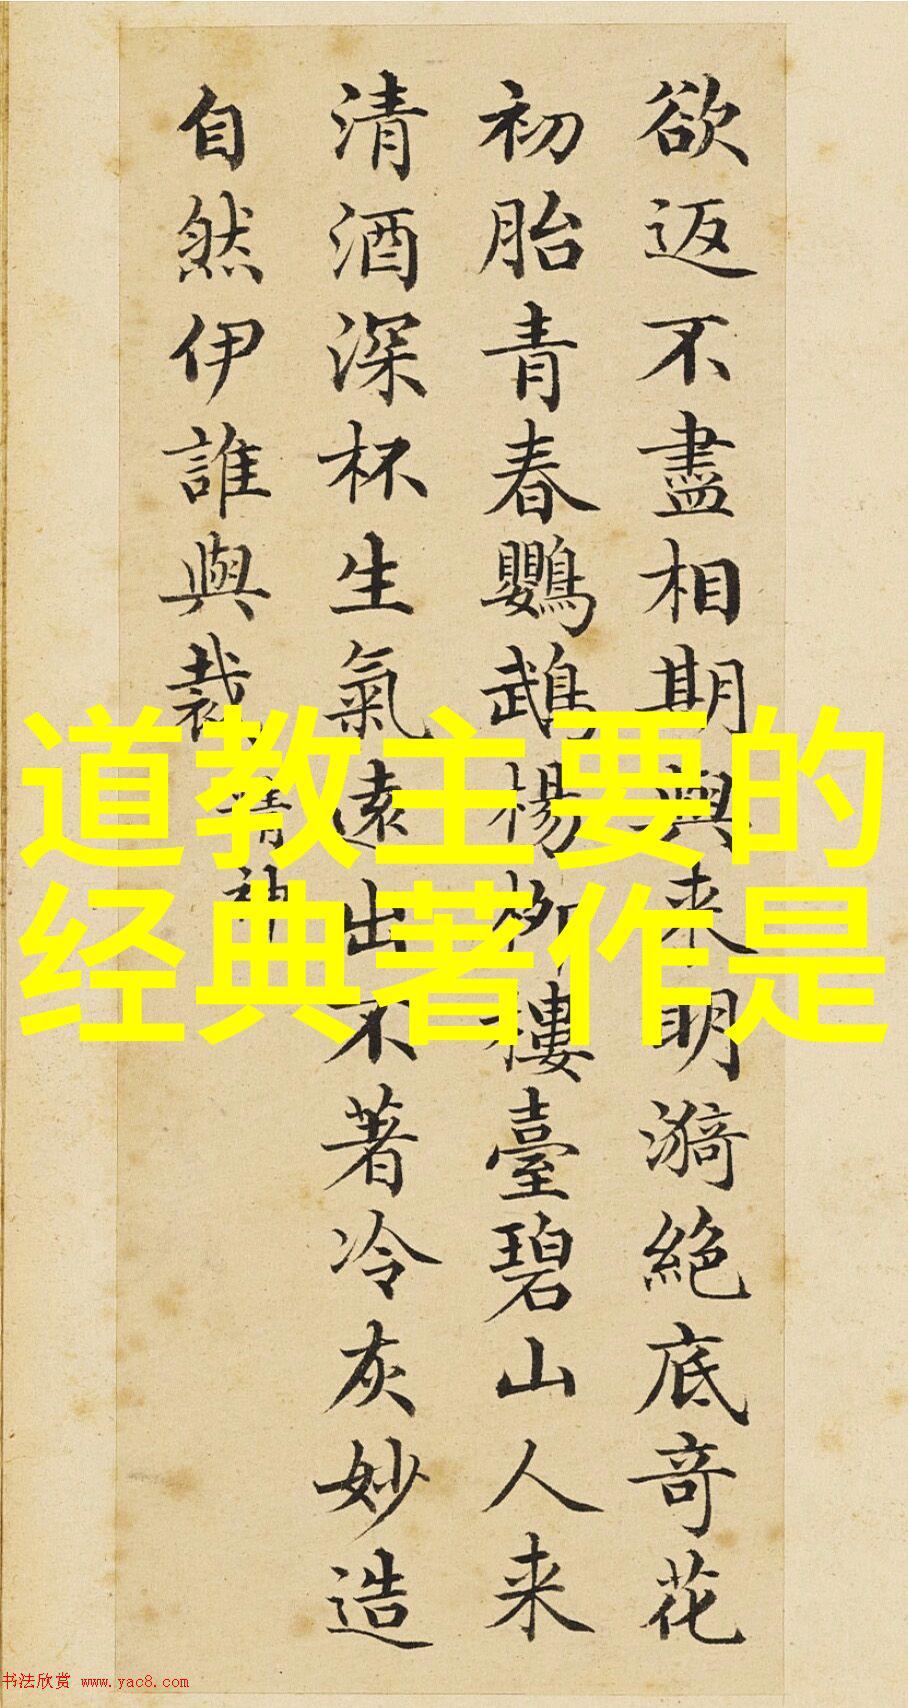 欲返不盡相期與来明漪絶底奇花
初胎青春鸚鵡楊柳樓臺碧山人来
清酒深杯生氣遠出不著冷灰妙造
自然伊誰與裁
精神
道教主要的
经典著作是
书法欣赏 www.yac8.com